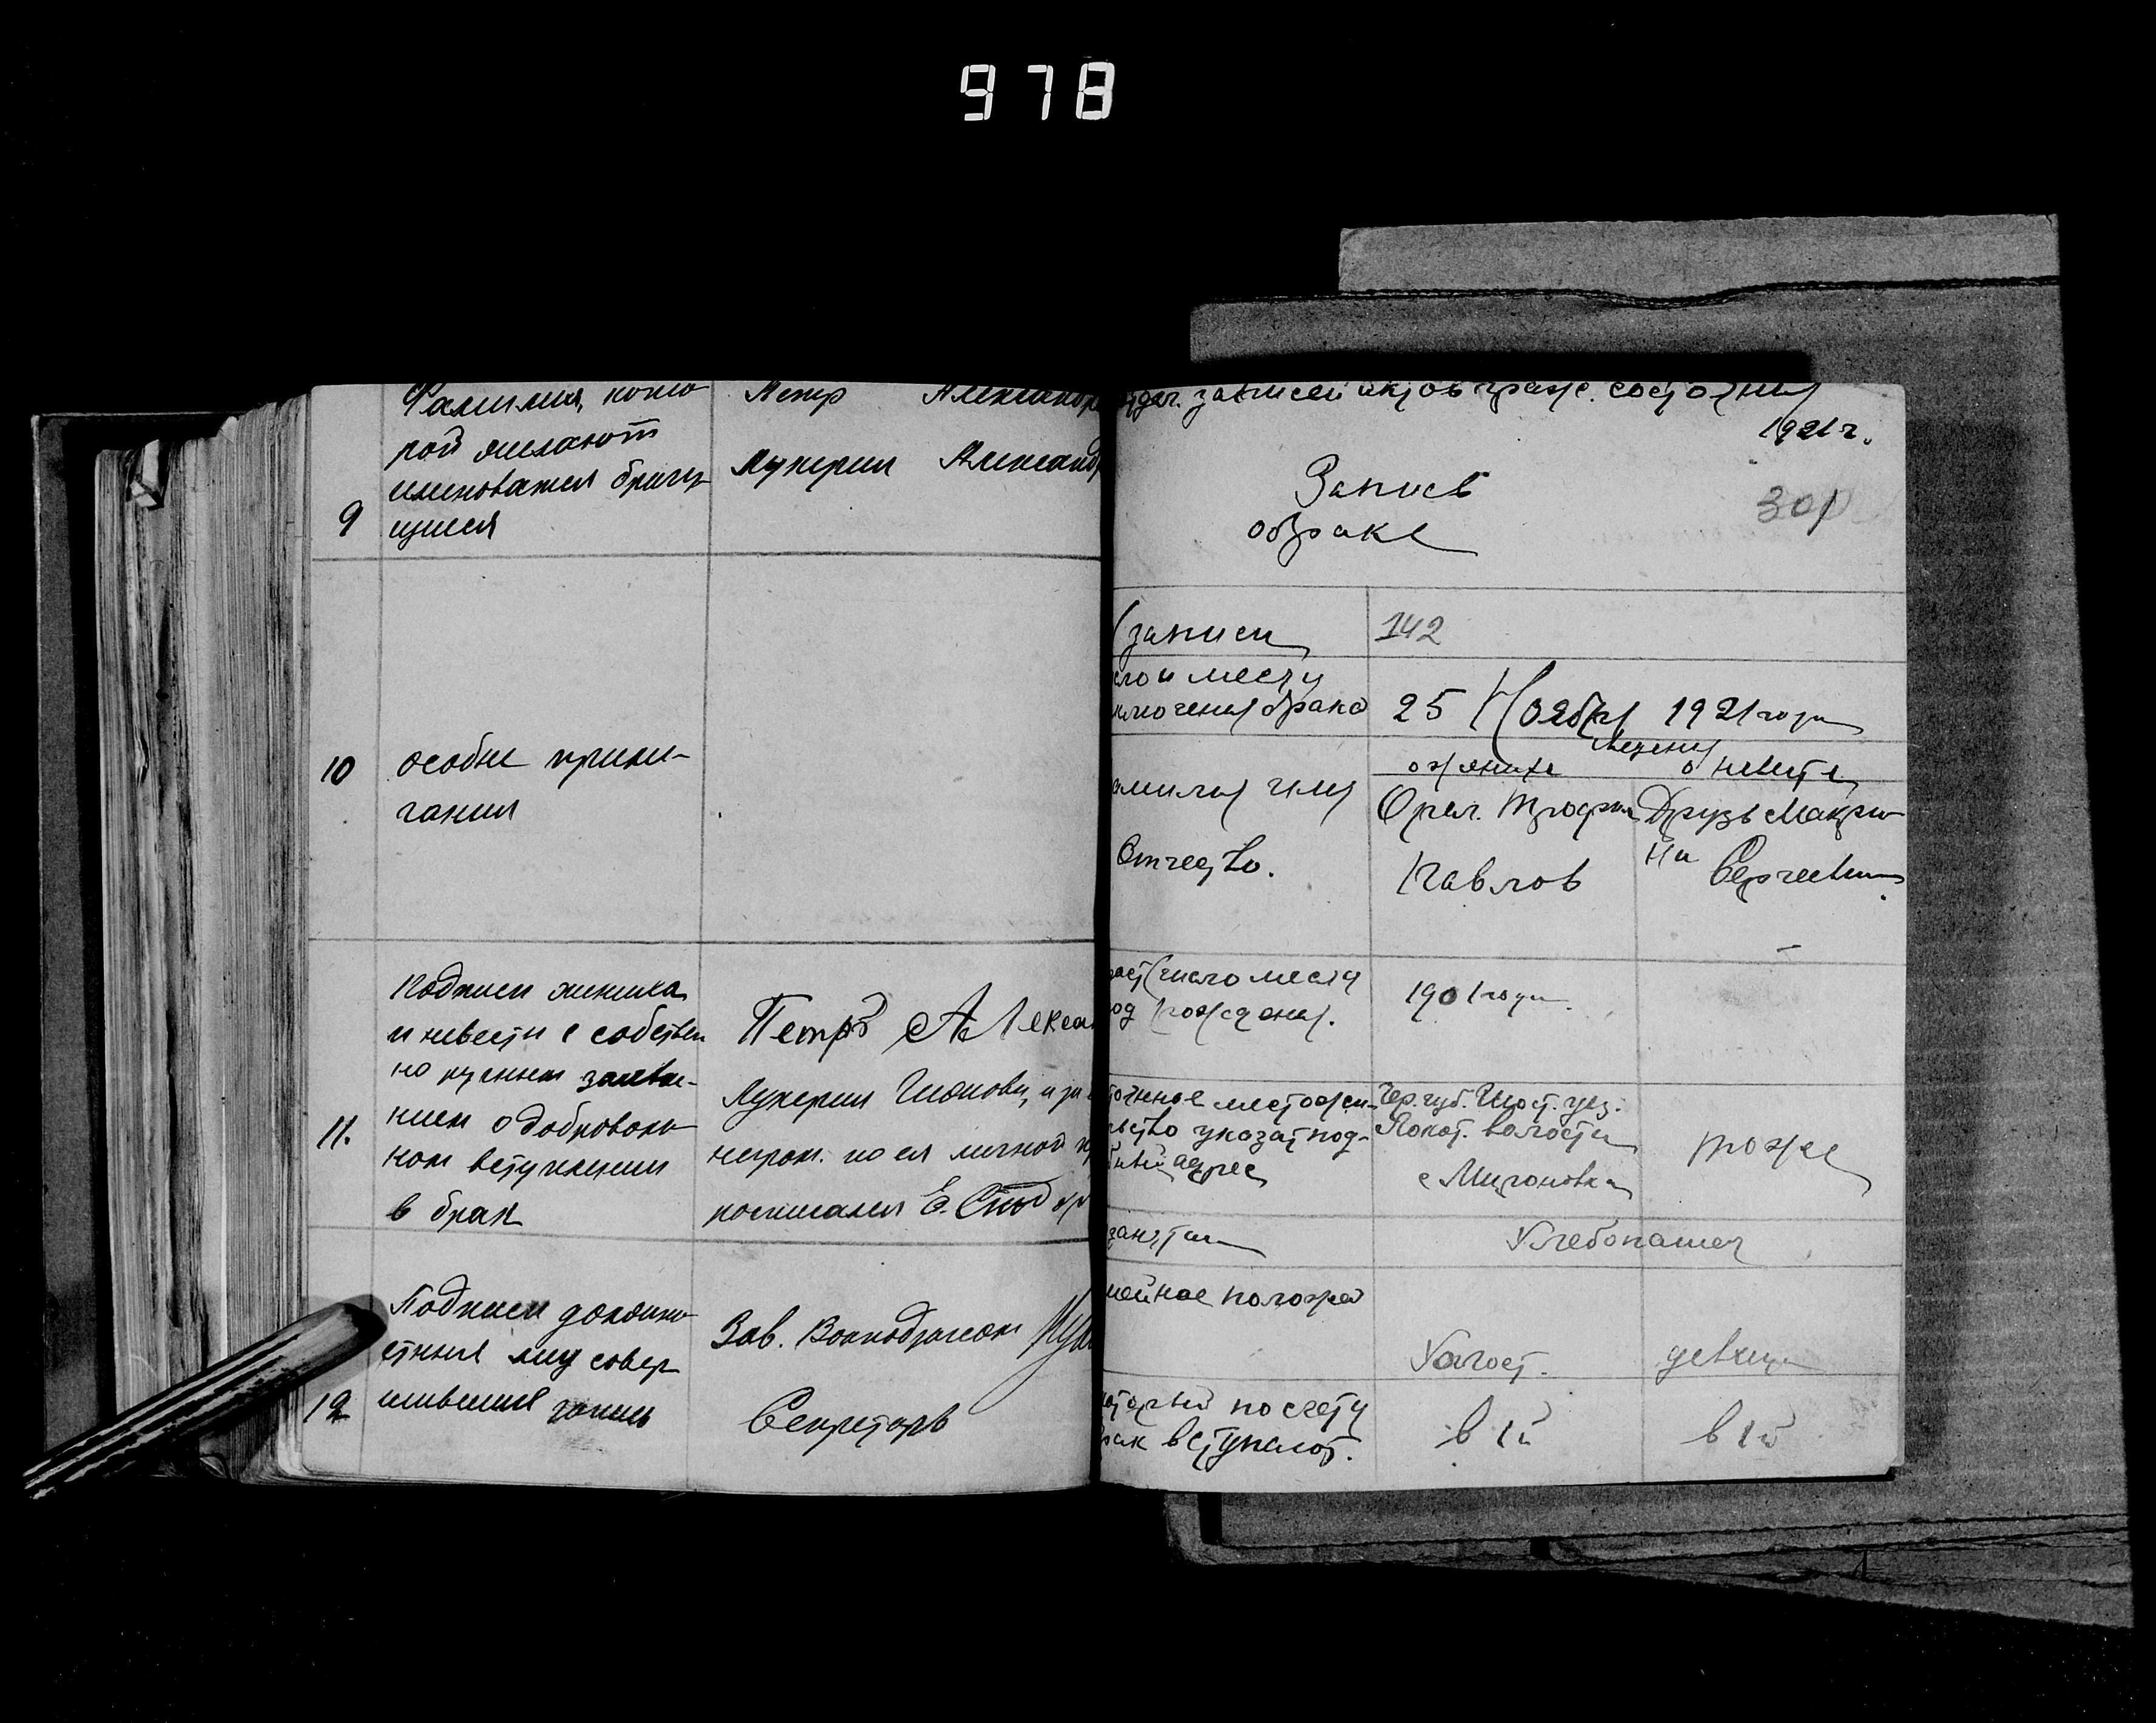 978
9
Фамилия, кото
рой желают
именоватся брачу-
щиеся
Петр Александр
Лукерия Александр
10
особые приме-
чания
11.
Подписи жениха
и невесты с собствен
но ручным заявле-
нием о доброволь
ном вступлении
в брак
Петръ Алексан
Лукерия Ионовн, и за
негром. по ея личной пр
росписался Е.
12
Подписи должно
стных лиц совер
шивших запись
Зав. Волподотделом
Секретарь
отдел. записей актов гражд. состояния
1921 г.
Запись
о браке
30
записи
142
сло и месту
ключения брака
25 Ноября 1921 года
Сведения
о женихе
о невесте
амилия имя
Отчество.
Орел. Трофим
Павлов
Друзь Макри-
на Сергеевна
раст (число места
год рождения).
1901 года.
точное место жи-
льство указат под-
бный адрес
Хер. губ. уез.
волости
с Мироновка
тоже
занятия
Хлебопашец
мейное полож
Холост.
девица
оторый по счету
рак вступают.
в 1й
в 1й